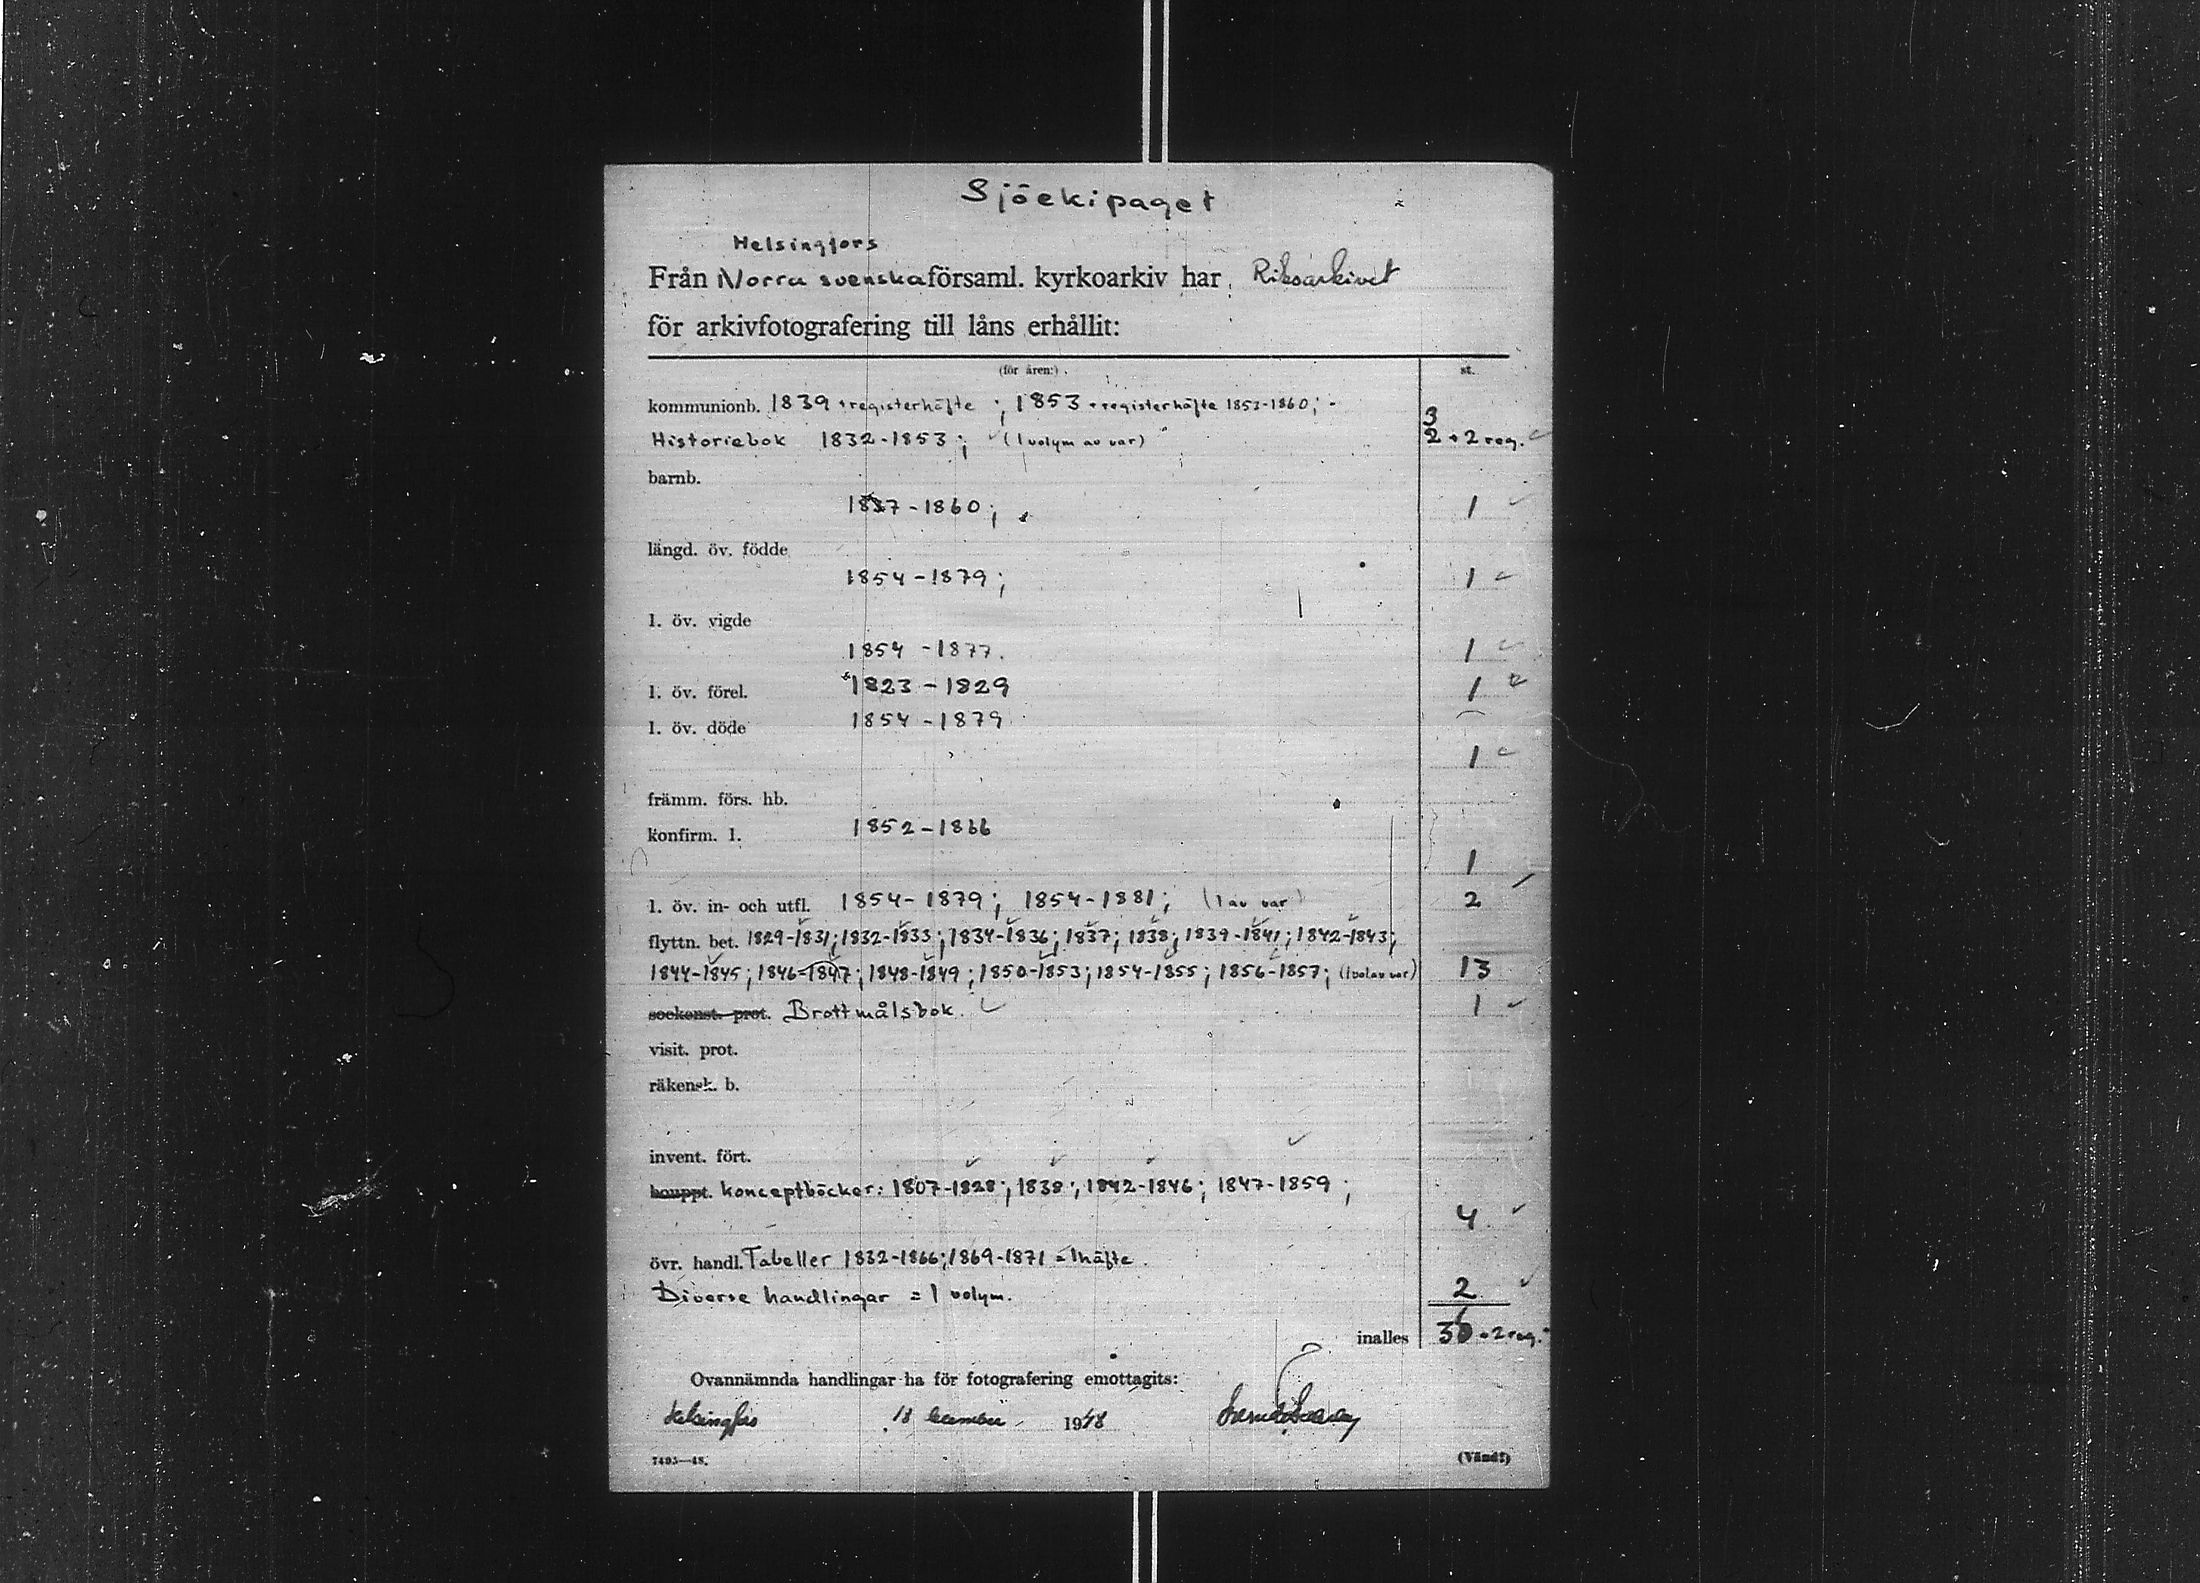 Sjöekipaget
Helsingfors
Från Norra svenska församl. kyrkoarkiv har Riksarkivet
för arkivfotografering till låns erhållit:
(för åren:) st.
kommunionb. 1839 + registerhäfte ; 1853 + registerhäfte 1853-1860; 3
Historiebok 1832-1853; (1 volym av var) 2 + 2 reg.
barnb.
1837-1860; 1
längd. öv. födde
1854-1879; 1
l. öv. vigde
1854-1877. 1
l. öv. förel. 1823-1829 1
l. öv. döde 1854-1879
1
främm. förs. hb.
konfirm. l. 1852-1866
1
l. öv. in- och utfl. 1854-1879; 1854-1881; (1 av var) 2
flyttn. bet. 1829-1831; 1832-1833; 1834-1836; 1837; 1838; 1839-1841; 1842-1843;
1844-1845; 1846-1847; 1848-1849; 1850-1853; 1854-1855; 1856-1857; (1 vol av var) 13
sockenst. prot. Brottmålsbok. 1
visit. prot.
räkensk. b.
invent. fört.
bouppt. Konceptböcker: 1807-1828; 1838; 1842-1846; 1847-1859;
4
övr. handl. Tabeller 1832-1866; 1869-1871 = 1 häfte.
Diverse handlingar = 1 volym. 2
inalles + 2 reg.
Ovannämnda handlingar ha för fotografering emottagits:
Helsingfors 18 december 1948
7495—48. (Vänd!)